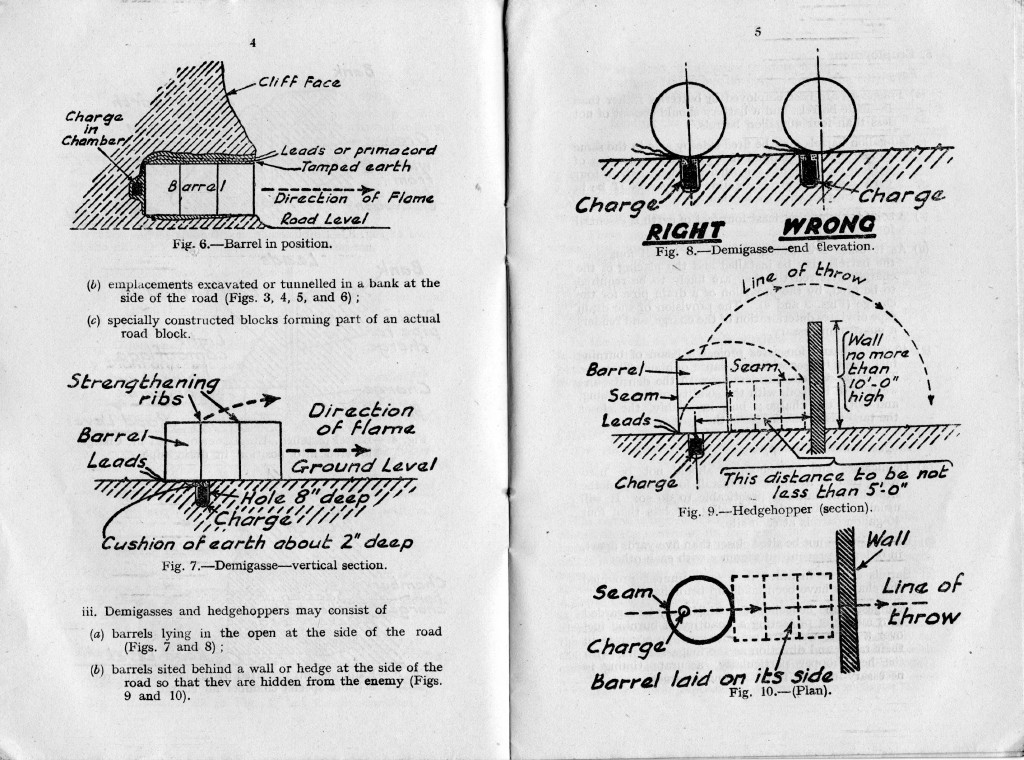 4
Cliff Face
Charge
in
Chamber
Leads or primacord
Tamped earth
Barrel
Direction of Flame
Road Level
Fig. 6.—Barrel in position.
(b) emplacements excavated or tunnelled in a bank at the
side of the road (Figs. 3, 4, 5, and 6) ;
(c) specially constructed blocks forming part of an actual
road block.
Strengthening
ribs
Direction
of flame
Barrel
Leads
Ground Level
Hole 8" deep
Charge
Cushion of earth about 2" deep
Fig. 7.—Demigasse—vertical section.
iii. Demigasses and hedgehoppers may consist of
(a) barrels lying in the open at the side of the road
(Figs. 7 and 8) ;
(b) barrels sited behind a wall or hedge at the side of the
road so that they are hidden from the enemy (Figs.
9 and 10).
5
Charge
Charge
RIGHT
WRONG
Fig. 8.—Demigasse—end elevation.
Line of throw
Barrel
Seam
Seam
Leads
Wall
no more
than
10'-0"
high
Charge
This distance to be not
less than 5'-0"
Fig. 9.—Hedgehopper (section).
Wall
Seam
Line of
throw
Charge
Barrel laid on its side
Fig. 10.—(Plan).